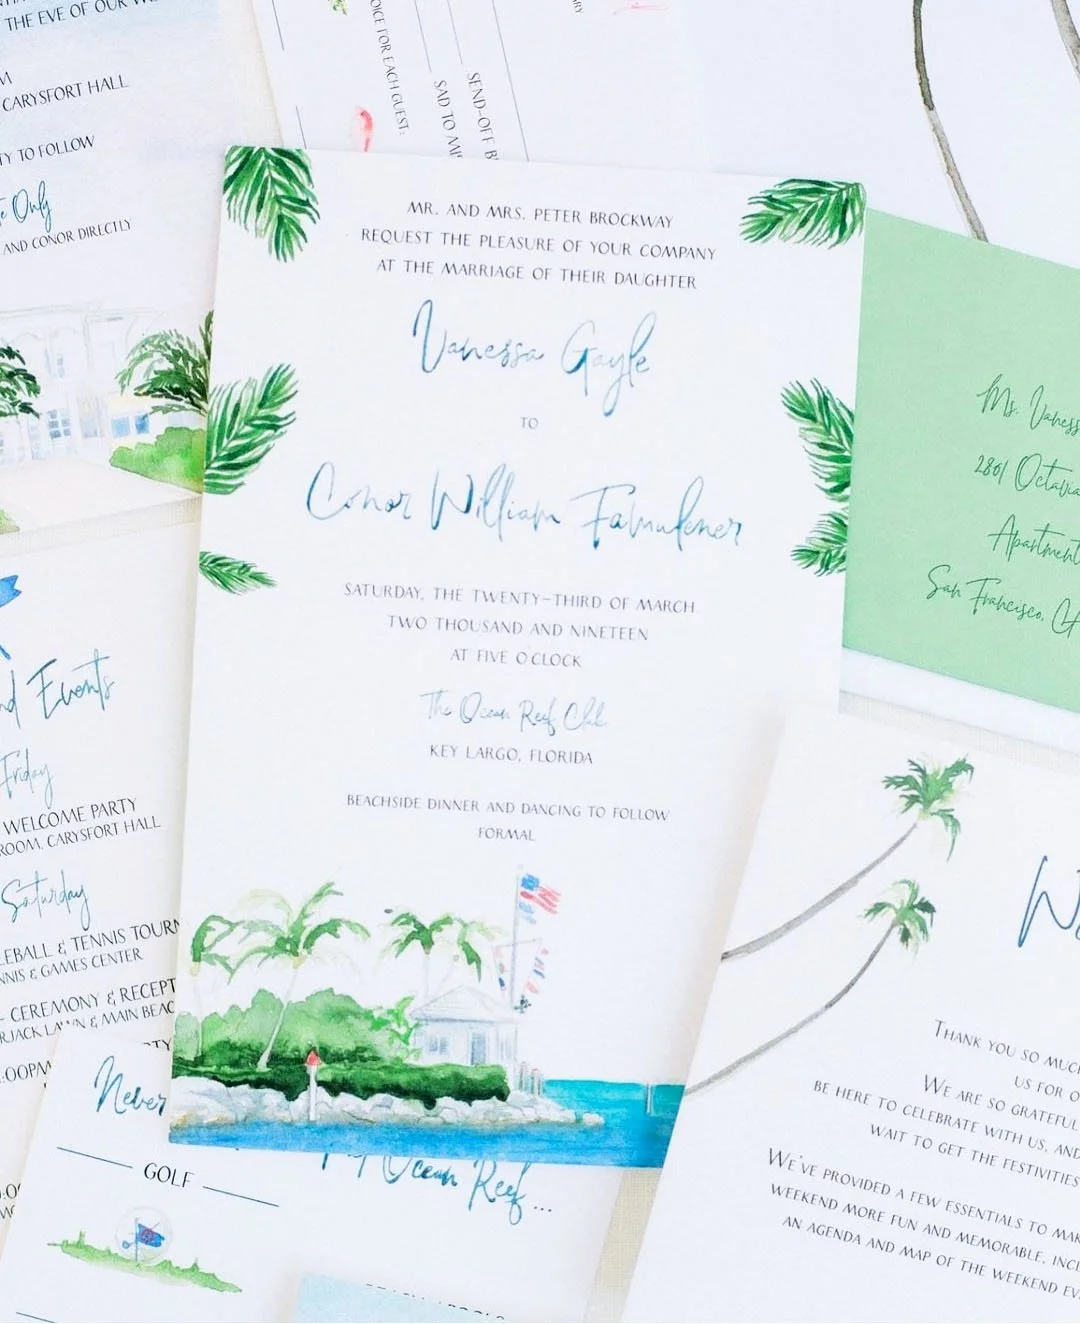 THE EVE OF OUR
CARYSFORT HALL
TO FOLLOW
Only
AND CONOR DIRECTLY
FOR EACH GUEST:
SAD TO
SEND-OFF
MR. AND MRS. PETER BROCKWAY
REQUEST THE PLEASURE OF YOUR COMPANY
AT THE MARRIAGE OF THEIR DAUGHTER
Vanessa Gayle
TO
Conor William Famulener
SATURDAY, THE TWENTY-THIRD OF MARCH
TWO THOUSAND AND NINETEEN
AT FIVE O'CLOCK
The Ocean Reef Club
KEY LARGO, FLORIDA
BEACHSIDE DINNER AND DANCING TO FOLLOW
FORMAL
Ms. Vaness
2801 Octavia
Apartment
San Francisco, CA
Events
Friday
WELCOME PARTY
ROOM, CARYSFORT HALL
Saturday
LEBALL & TENNIS TOURN
NNIS & GAMES CENTER
CEREMONY & RECEPT
LAWN & MAIN BEAC
:00PM
Never
Ocean Reef...
GOLF
THANK YOU SO MUC
US FOR
WE ARE SO GRATEFUL
BE HERE TO CELEBRATE WITH US, AND
WAIT TO GET THE FESTIVITIES
WE'VE PROVIDED A FEW ESSENTIALS TO MAK
WEEKEND MORE FUN AND MEMORABLE, INCL
AN AGENDA AND MAP OF THE WEEKEND EV